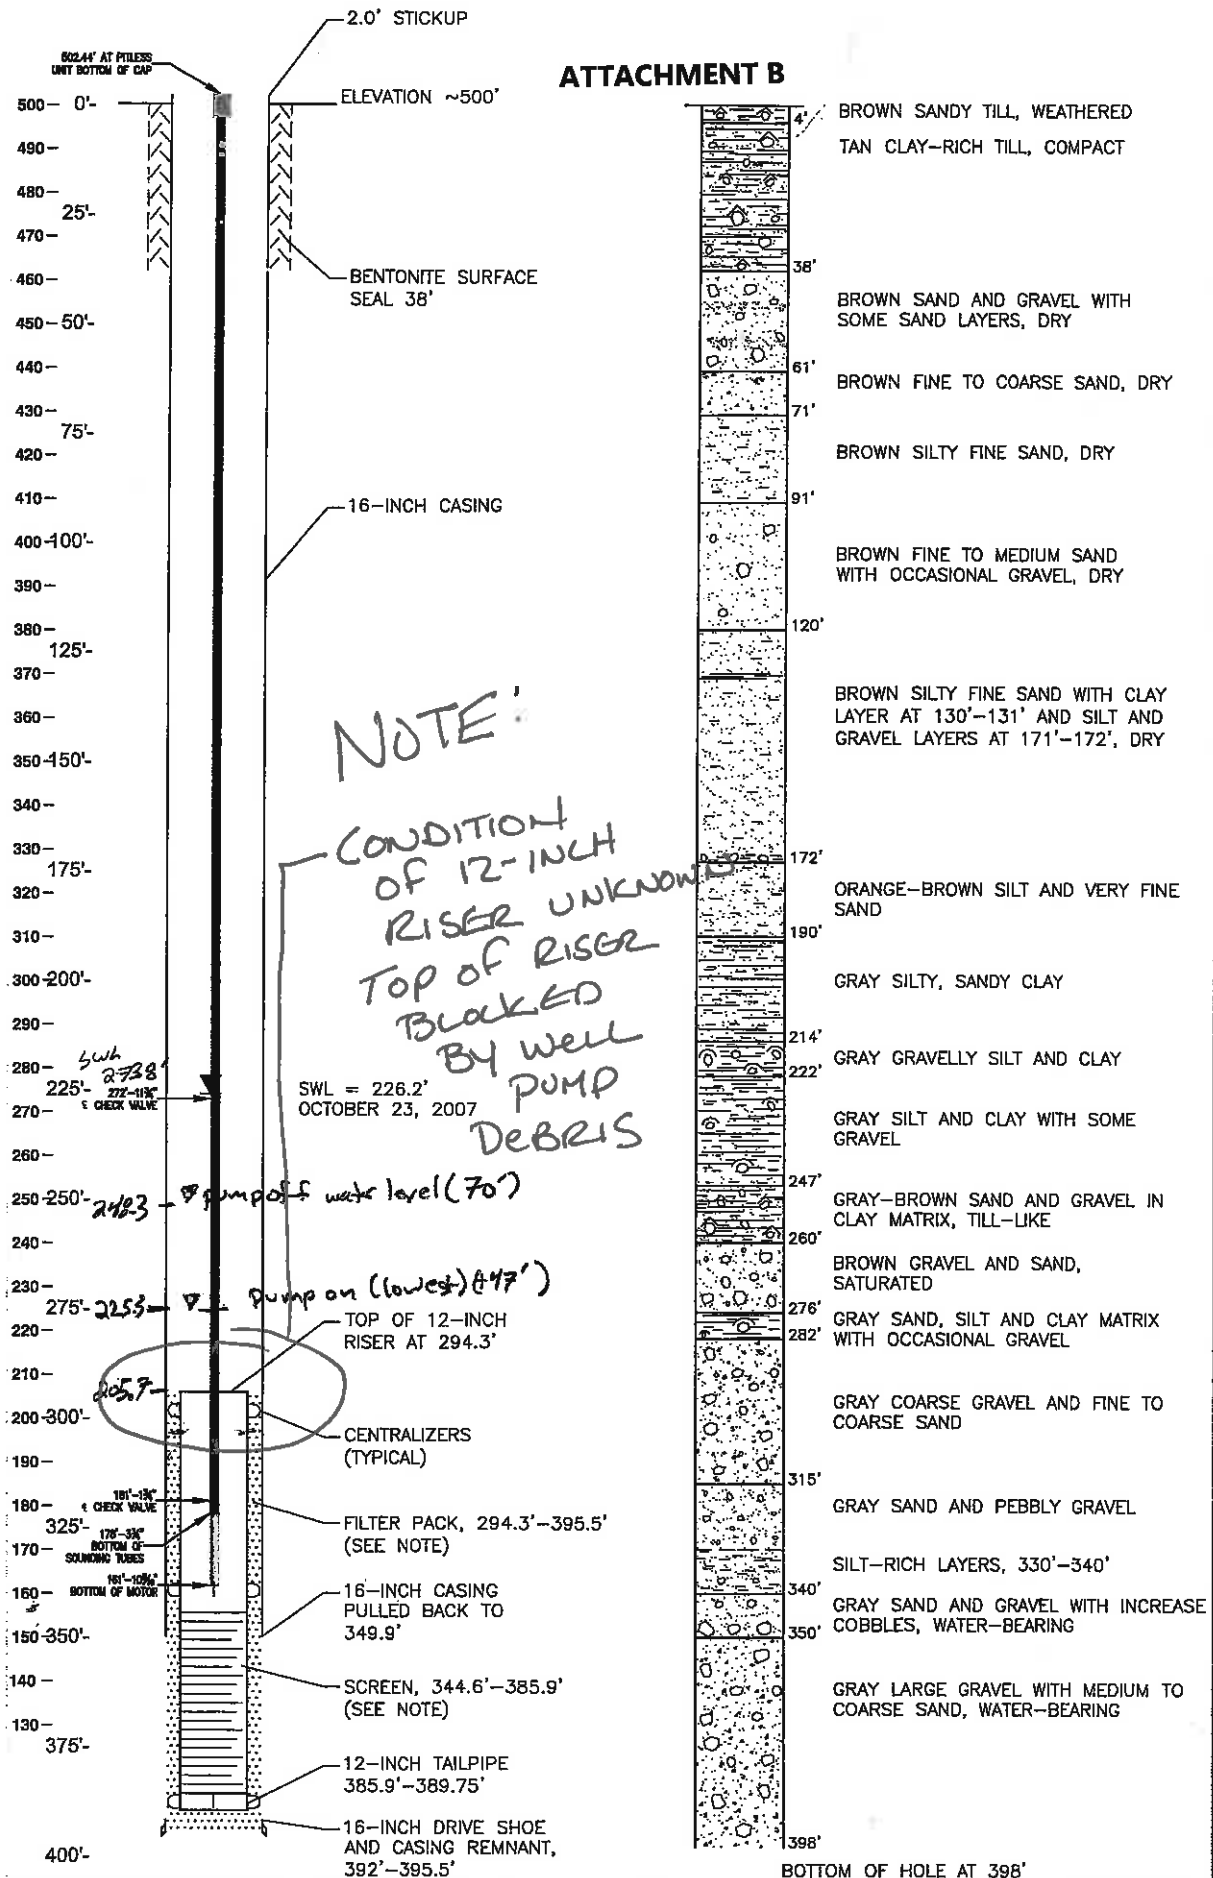 2.0' STICKUP
502.44' AT PITLESS
UNIT BOTTOM OF CAP
ATTACHMENT B
ELEVATION ~500'
500- 0'-
490-
480-
25'-
470-
460-
450- 50'-
440-
430-
75'-
420-
410-
400-100'-
390-
380-
125'-
370-
360-
350-150'-
340-
330-
175'-
320-
310-
300-200'-
290-
280-
225'-
270-
260-
250-250'-
240-
230-
275'-
220-
210-
200-300'-
190-
180-
325'-
170-
160-
150-350'-
140-
130-
375'-
400'-
BENTONITE SURFACE
SEAL 38'
16-INCH CASING
NOTE:
CONDITION
OF 12-INCH
RISER UNKNOWN
TOP OF RISER
BLOCKED
BY WELL
PUMP
DEBRIS
SWL
273.8'
272'-11¾"
℄ CHECK VALVE
SWL = 226.2'
OCTOBER 23, 2007
pump off water level (70')
Pump on (lowest) (47')
2253
205.7
TOP OF 12-INCH
RISER AT 294.3'
CENTRALIZERS
(TYPICAL)
℄ CHECK VALVE
BOTTOM OF
SOUNDING TUBES
BOTTOM OF MOTOR
FILTER PACK, 294.3'-395.5'
(SEE NOTE)
16-INCH CASING
PULLED BACK TO
349.9'
SCREEN, 344.6'-385.9'
(SEE NOTE)
12-INCH TAILPIPE
385.9'-389.75'
16-INCH DRIVE SHOE
AND CASING REMNANT,
392'-395.5'
4'
BROWN SANDY TILL, WEATHERED
TAN CLAY-RICH TILL, COMPACT
38'
BROWN SAND AND GRAVEL WITH
SOME SAND LAYERS, DRY
61'
BROWN FINE TO COARSE SAND, DRY
71'
BROWN SILTY FINE SAND, DRY
91'
BROWN FINE TO MEDIUM SAND
WITH OCCASIONAL GRAVEL, DRY
120'
BROWN SILTY FINE SAND WITH CLAY
LAYER AT 130'-131' AND SILT AND
GRAVEL LAYERS AT 171'-172', DRY
172'
ORANGE-BROWN SILT AND VERY FINE
SAND
190'
GRAY SILTY, SANDY CLAY
214'
GRAY GRAVELLY SILT AND CLAY
222'
GRAY SILT AND CLAY WITH SOME
GRAVEL
247'
GRAY-BROWN SAND AND GRAVEL IN
CLAY MATRIX, TILL-LIKE
260'
BROWN GRAVEL AND SAND,
SATURATED
276'
GRAY SAND, SILT AND CLAY MATRIX
WITH OCCASIONAL GRAVEL
282'
GRAY COARSE GRAVEL AND FINE TO
COARSE SAND
315'
GRAY SAND AND PEBBLY GRAVEL
SILT-RICH LAYERS, 330'-340'
340'
GRAY SAND AND GRAVEL WITH INCREASE
COBBLES, WATER-BEARING
350'
GRAY LARGE GRAVEL WITH MEDIUM TO
COARSE SAND, WATER-BEARING
398'
BOTTOM OF HOLE AT 398'